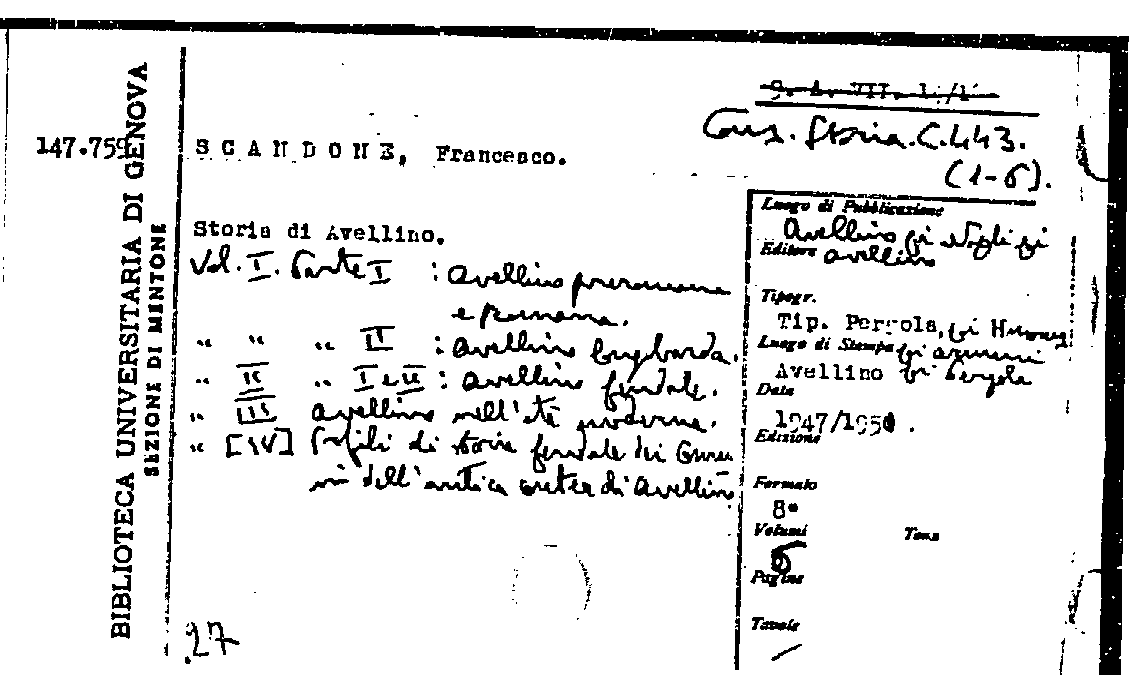 BIBLIOTECA UNIVERSITARIA DI GENOVA
SEZIONE DI MENTONE
147.759
SCANDONE, Francesco.
Cons. Storia.C.443.
(1-5).
Storia di Avellino.
Vol. I. Parte I : Avellino preromana
e Romana.
" " " II : Avellino longobarda.
" II " I e II : Avellino feudale.
" III Avellino nell'età moderna.
" [IV] Profili di storia feudale dei Comu
ni dell'antica contea di Avellino
27
Luogo di Pubblicazione
Avellino poi Napoli poi
Editore Avellino
Tipogr.
Tip. Pergola, poi
Luogo di Stampa poi
Avellino poi Pergola
Data
1947/1950.
Edizione
Formato
8°
Volumi Tomi
5
Pagine
Tavole
/